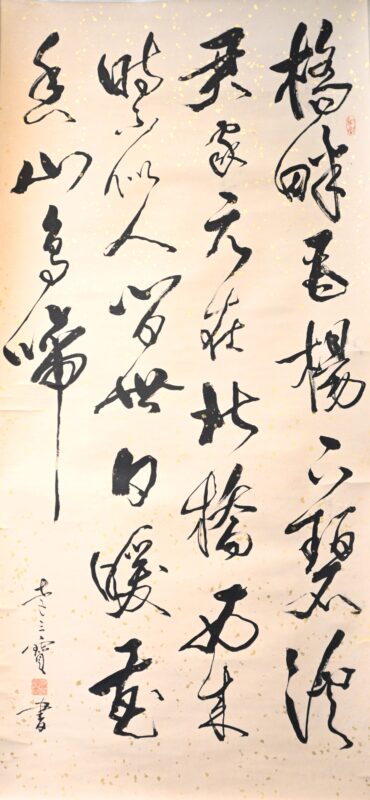 橋畔垂楊下碧溪
君家元在北橋西來
時不似人間世日暖花
香山鳥啼
三寶書